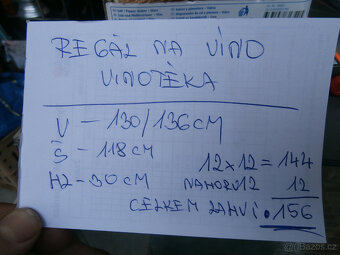 REGÁL NA VÍNO
VINOTÉKA
V – 130/136CM
Š – 118CM
HL – 30CM
12x12 = 144
NAHORU 12 12
CELKEM LAHVÍ: 156
Bazoš.cz